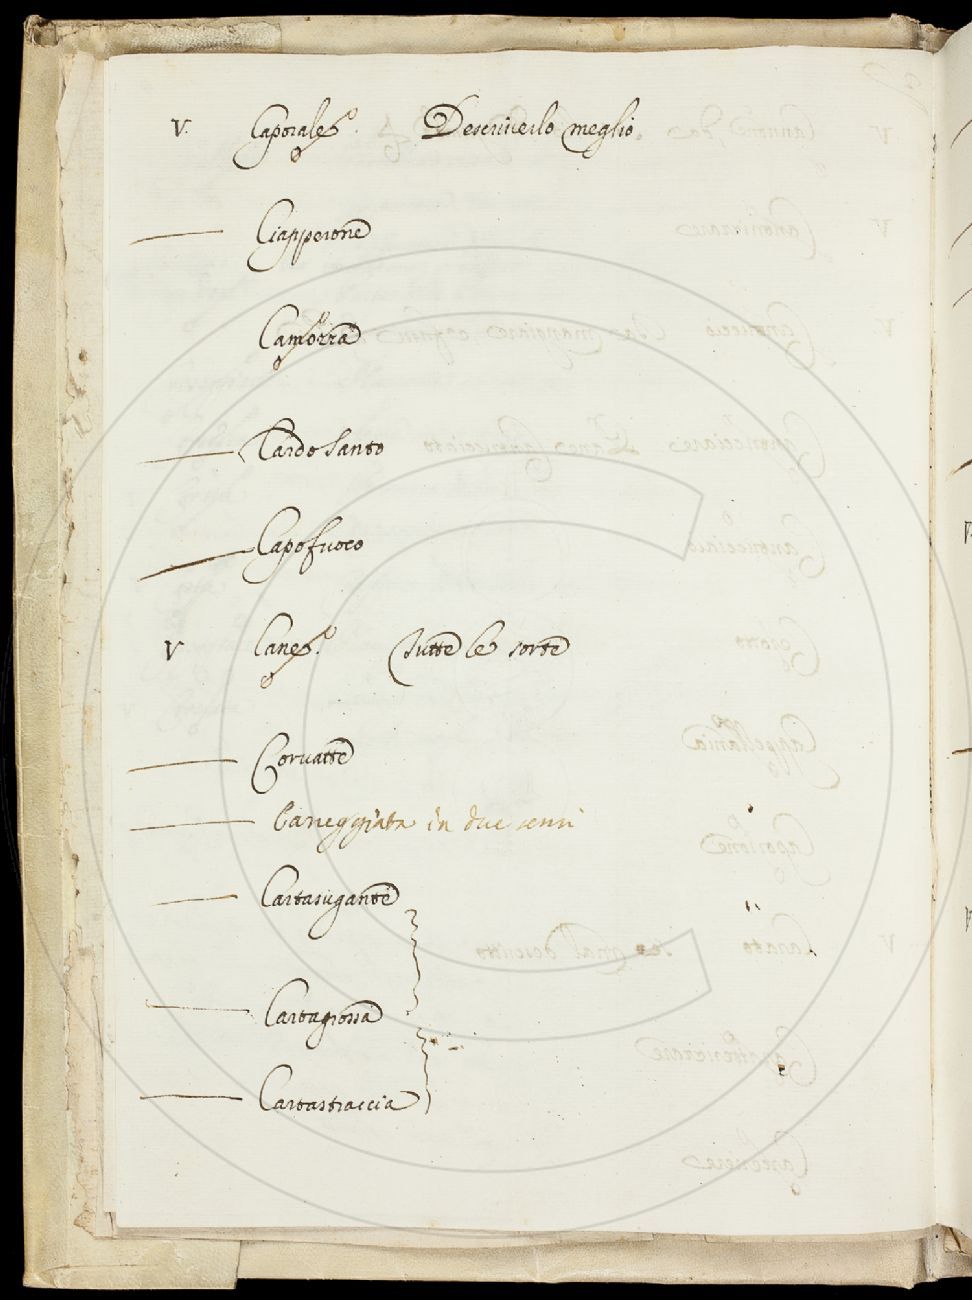 V. Caporale. Descriverlo meglio.
Ciapperone
Camorra
Cardo Santo
Capofuoco
V Cane. Tutte le sorte
Corvatte
Careggiata in due sensi
Cartasugante
Cartagrossa
Cartastraccia